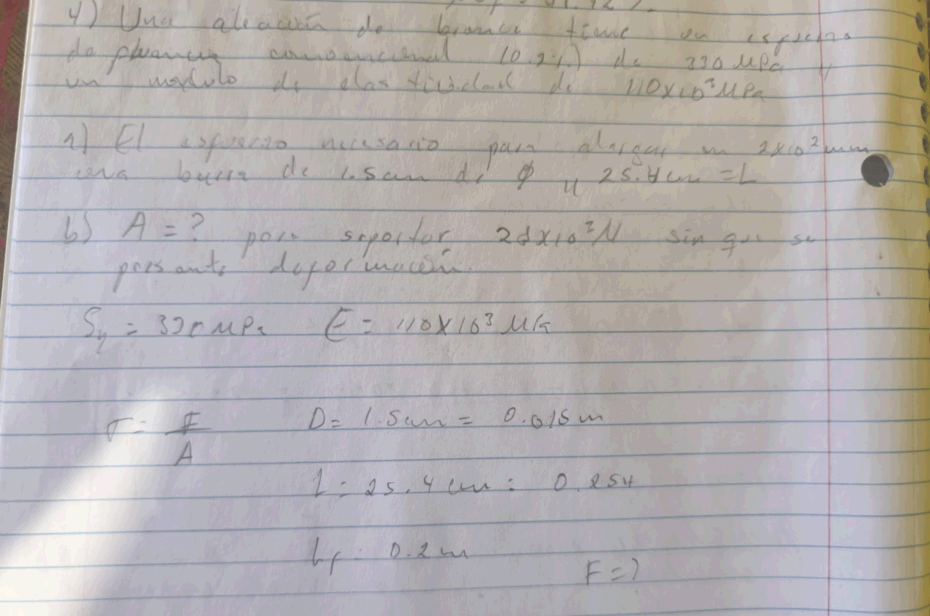 4) Una aleación de bronce tiene un esfuerzo
de fluencia convencional (0.2%) de 330 MPa y
un modulo de elasticidad de 110x10³ MPa
a) El esfuerzo necesario para alargar en 2x10² mm
una barra de 1.5cm de Ø y 25.4cm = L
b) A = ? para soportar x10³N sin que se
presente deformación.
Sy = 330 MPa E = 110x10³ MPa
σ = F/A D = 1.5cm = 0.015m
L = 25.4 cm = 0.254
Lf = 0.2m
F = ?